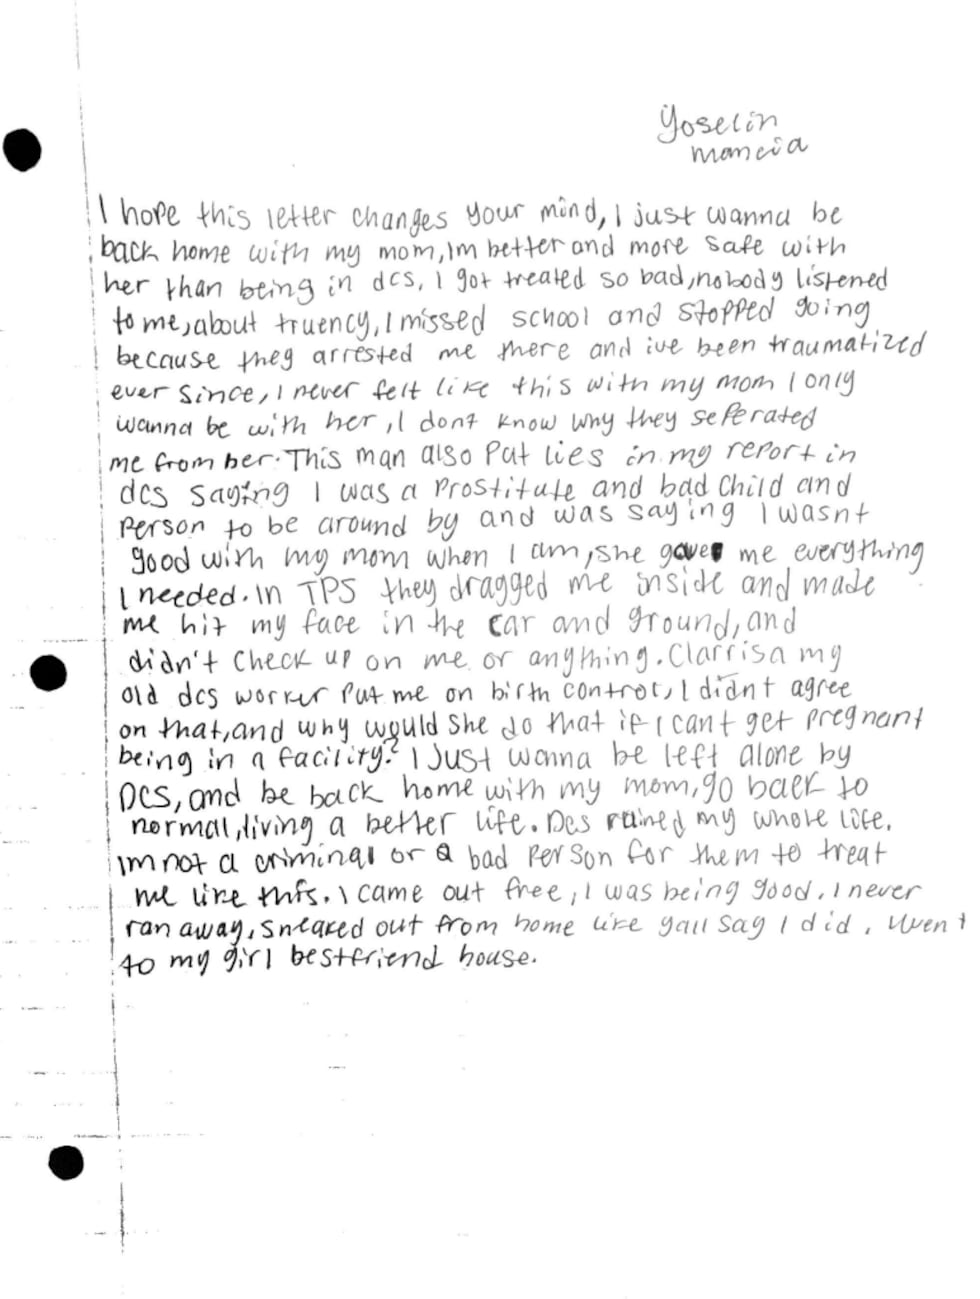 Yoselin
mancia
I hope this letter changes your mind, I just wanna be
back home with my mom, Im better and more safe with
her than being in dcs, I got treated so bad, nobody listened
to me, about truency, I missed school and stopped going
because they arrested me there and ive been traumatized
ever since, I never felt like this with my mom I only
wanna be with her, I dont know why they seperated
me from her. This man also put lies in my report in
dcs saying I was a prostitute and bad child and
person to be around by and was saying I wasnt
good with my mom when I am, she gave me everything
I needed. In TPS they dragged me inside and made
me hit my face in the car and ground, and
didn't check up on me or anything. Clarrisa my
old dcs worker put me on birth control, I didnt agree
on that, and why would she do that if I cant get pregnant
being in a facility? I Just wanna be left alone by
DCS, and be back home with my mom, go back to
normal, living a better life. Dcs ruined my whole life.
Im not a criminal or a bad person for them to treat
me like this. I came out free, I was being good. I never
ran away, sneaked out from home like yall say I did, I went
to my girl bestfriend house.